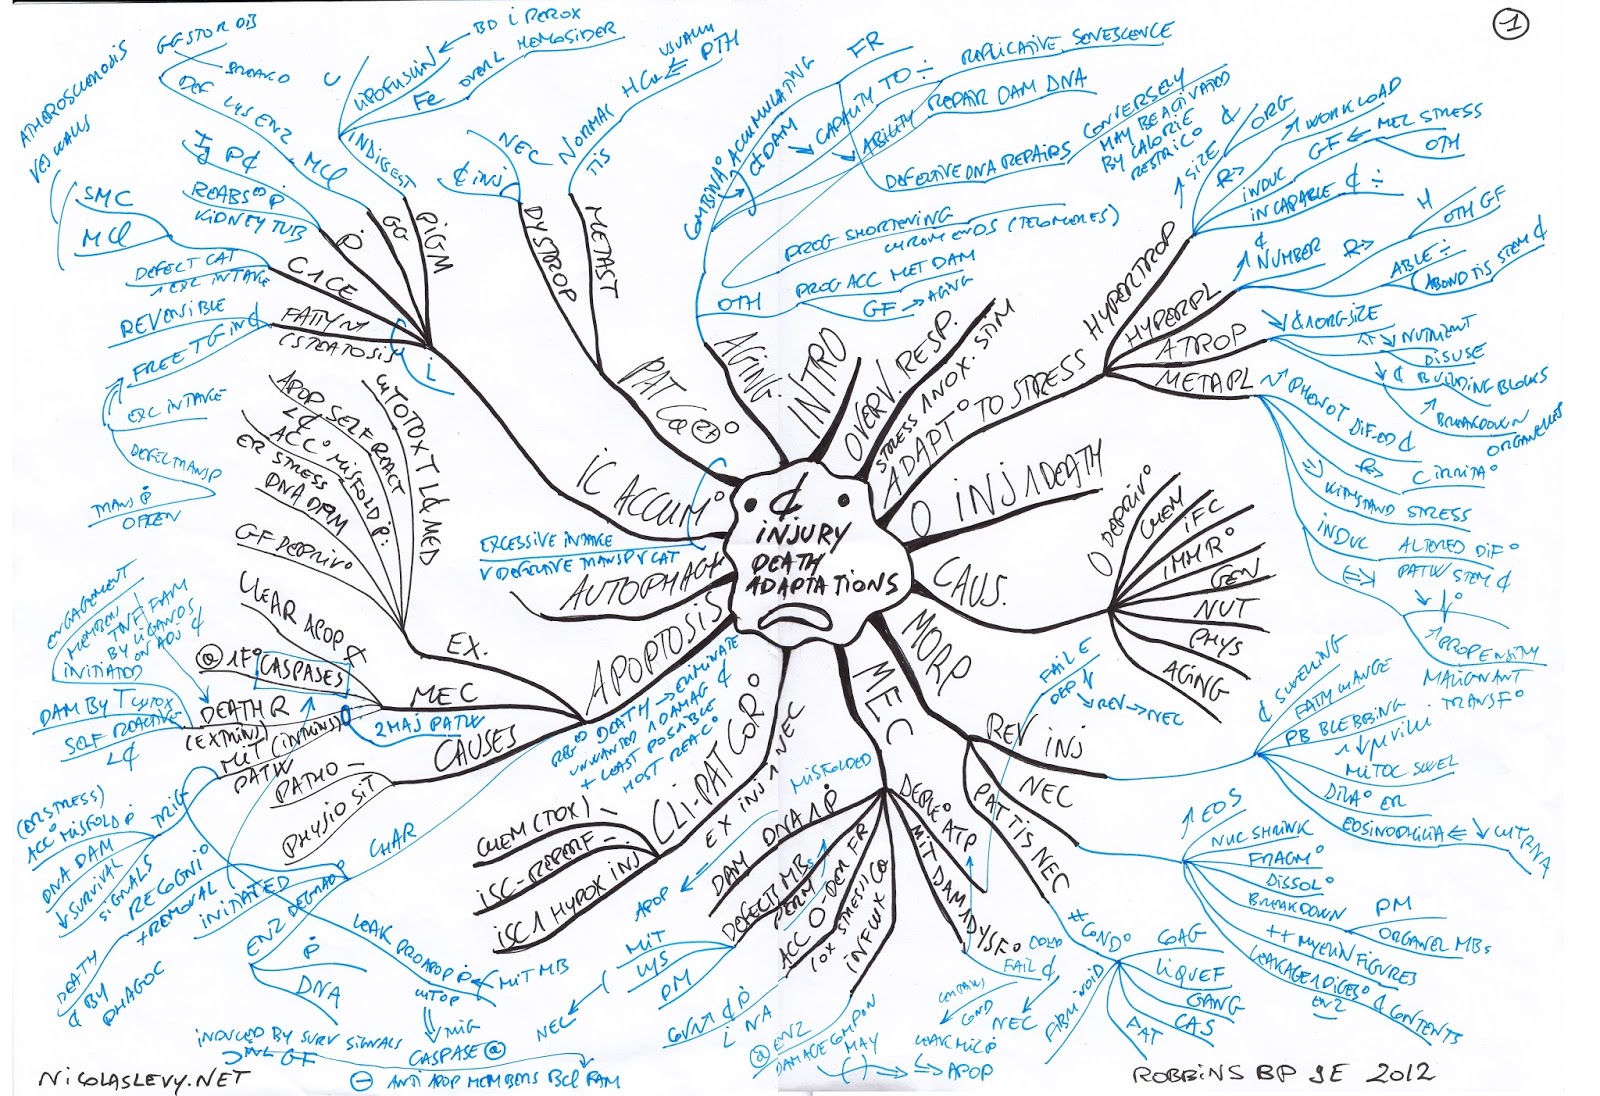 1
¢
INJURY
DEATH
ADAPTATIONS
INTRO
OVERV. RESP.
STRESS 1 NOX. STIM
ADAPT° TO STRESS
HYPERTROP
↗ SIZE ¢ & ORG
R→ ↗ WORKLOAD
INDUC GF ← MEC STRESS
OTH
INCAPABLE ¢ ÷
HYPERPL
↗ NUMBER
R→
H
OTH GF
ABLE ÷
ABOND TIS STEM ¢
ATROP
↘ ¢ 1 ORG SIZE
↘ NUTRIENT
DISUSE
↘ ¢ BUILDING BLOCKS
↗ BREAKDOWN
ORGANELLES
METAPL
PHENOT DIF-ED ¢
R→ CIRRITA°
WITHSTAND STRESS
INDUC ALTERED DIF°
PATW STEM ¢
↗ PROPENSITY
MALIGNANT
TRANSF°
O INJ 1 DEATH
CAUS.
O DEPRIV°
CHEM
IFC
IMMR°
GEN
NUT
PHYS
AGING
MORP
REV INJ
¢ SWELLING
FATTY CHANGE
PB BLEBBING
MITOC SWEL
DILA° ER
EOSINOPHILIA
NEC
↗ EOS
NUC SHRINK
FRAGM°
DISSOL°
BREAKDOWN
PM
ORGANEL MBs
++ MYELIN FIGURES
LEAKAGE 1 DIGES° ¢ CONTENTS
ENZ
PAT TIS NEC
≠ COND°
COAG
LIQUEF
GANG
CAS
FAT
FIBRINOID
MEC
DEPLE° ATP
FAIL E
DEP ↘ REV → NEC
MIT DAM 1 DYSF°
COULD
FAIL ¢
COND
NEC
APOP
INFLUX
ACC O-DER FR
DEFECTS MBs
PERM
MIT
LYS
PM
NEC
DAM DNA 1 P
MISFOLDED
APOP
ENZ
DAMAGE COMPON
MAY
CLI-PAT COR°
EX INJ 1 NEC
CHEM (TOX)
ISC-REPERF
ISC 1 HYPOX INJ
APOPTOSIS
REG° DEATH → ELIMINATE
UNWANTED 1 DAMAG ¢
+ LEAST POSSIBLE
HOST REAC°
EX.
CYTOTOX T L¢ MED
APOP SELF REACT
L¢
ACC° MISFOLD P:
ER STRESS
DNA DAM
GF DEPRIV°
CLEAR APOP ¢
MEC
CASPASES
2 MAJ PATW
DEATH R
(EXTRINS)
MIT (INTRINS)
PATW
ENGAGEMENT
BY LIGANDS
ON ADJ ¢
INITIATED
DAM BY T CYTOX
SELF REACTIVE
L¢
CAUSES
PATHO -
PHYSIO SIT
TRIG
(ER STRESS)
ACC° MISFOLD P
DNA DAM
↓ SURVIVAL
SIGNALS
CHAR
RECOGNI°
+ REMOVAL
INITIATED
DEATH
¢ BY
PHAGOC
ENZ DEGRAD
P
DNA
LEAK PROAPOP P
CYTOP
MIT MB
CASPASE @
INDUCED BY SURV SIGNALS
GF
⊖ ANTI APOP MEMBERS BCL FAM
AUTOPHAGY
IC ACCUM°
EXCESSIVE INTAKE
V DEFECTIVE TRANSP V CAT
FATTY
(STEATOSIS)
L
REVERSIBLE
FREE TG IN ¢
EXC INTAKE
DEFEC TRANSP
TRANS P
OFTEN
C 1 CE
DEFECT CAT
1 EXC INTAKE
SMC
ATHEROSCLEROSIS
VES WALLS
P
REABS° P
KIDNEY TUB
GG
DEF LYS ENZ
GG STOR DIS
PIGM
INDIGEST
C
LIPOFUSCIN
Fe OVERL HEMOSIDER
PAT CA°
DYSTROP
¢ INJ
NEC
METAST
NORMAL TIS
H Ca ← USUALLY PTH
AGING
COMBINA° ACCUMULATING
¢ DAM
FR
↘ CAPACITY TO ÷
REPLICATIVE SENESCENCE
↘ ABILITY REPAIR DAM DNA
DEFECTIVE DNA REPAIRS
CONVERSELY
MAY BE ACTIVATED
BY CALORIE
RESTRIC°
PROG SHORTENING
CHROM ENDS (TELOMERES)
OTH
PROG ACC MET DAM
GF → AGING
NICOLASLEVY.NET
ROBBINS BP 9E 2012